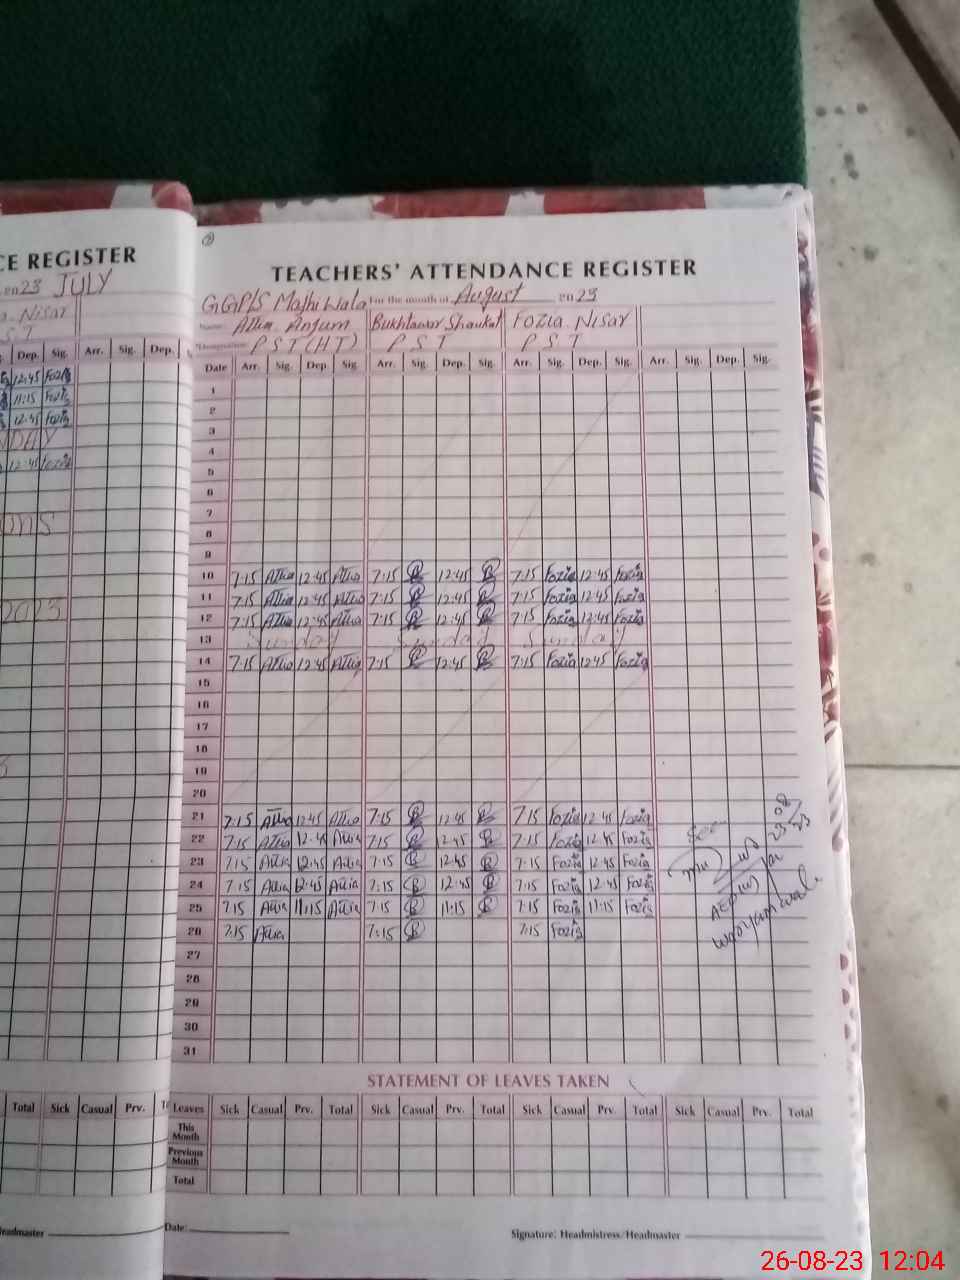 CE REGISTER
en 23 JULY
a. Nisar
S T
Dep. Sig. Arr. Sig. Dep.
12:45 Fozia
11:15 Fozia
12:45 Fozia
12:45 Fozia
2023
Total Sick Casual Prv.
TEACHERS' ATTENDANCE REGISTER
GGP/S Majhi Wala For the month of August en 23
Name: Attia Anjum Bukhtawar Shaukat Fozia Nisar
Designation: P S T (H T) P S T P S T
Date Arr. Sig. Dep. Sig. Arr. Sig. Dep. Sig. Arr. Sig. Dep. Sig. Arr. Sig. Dep. Sig.
1
2
3
4
5
6
7
8
9
10 7:15 Attia 12:45 Attia 7:15 B 12:45 B 7:15 Fozia 12:45 Fozia
11 7:15 Attia 12:45 Attia 7:15 B 12:45 B 7:15 Fozia 12:45 Fozia
12 7:15 Attia 12:45 Attia 7:15 B 12:45 B 7:15 Fozia 12:45 Fozia
13 Sunday Sunday Sunday
14 7:15 Attia 12:45 Attia 7:15 B 12:45 B 7:15 Fozia 12:45 Fozia
15
16
17
18
19
20
21 7:15 Attia 12:45 Attia 7:15 B 12:45 B 7:15 Fozia 12:45 Fozia
22 7:15 Attia 12:45 Attia 7:15 B 12:45 B 7:15 Fozia 12:45 Fozia
23 7:15 Attia 12:45 Attia 7:15 B 12:45 B 7:15 Fozia 12:45 Fozia
24 7:15 Attia 12:45 Attia 7:15 B 12:45 B 7:15 Fozia 12:45 Fozia
25 7:15 Attia 11:15 Attia 7:15 B 11:15 B 7:15 Fozia 11:15 Fozia
26 7:15 Attia 7:15 B 7:15 Fozia
27
28
29
30
31
23 08 23
AEO(W)
STATEMENT OF LEAVES TAKEN
Leaves Sick Casual Prv. Total Sick Casual Prv. Total Sick Casual Prv. Total Sick Casual Prv. Total
This Month
Previous Month
Total
Date: Signature: Headmistress/Headmaster
26-08-23 12:04